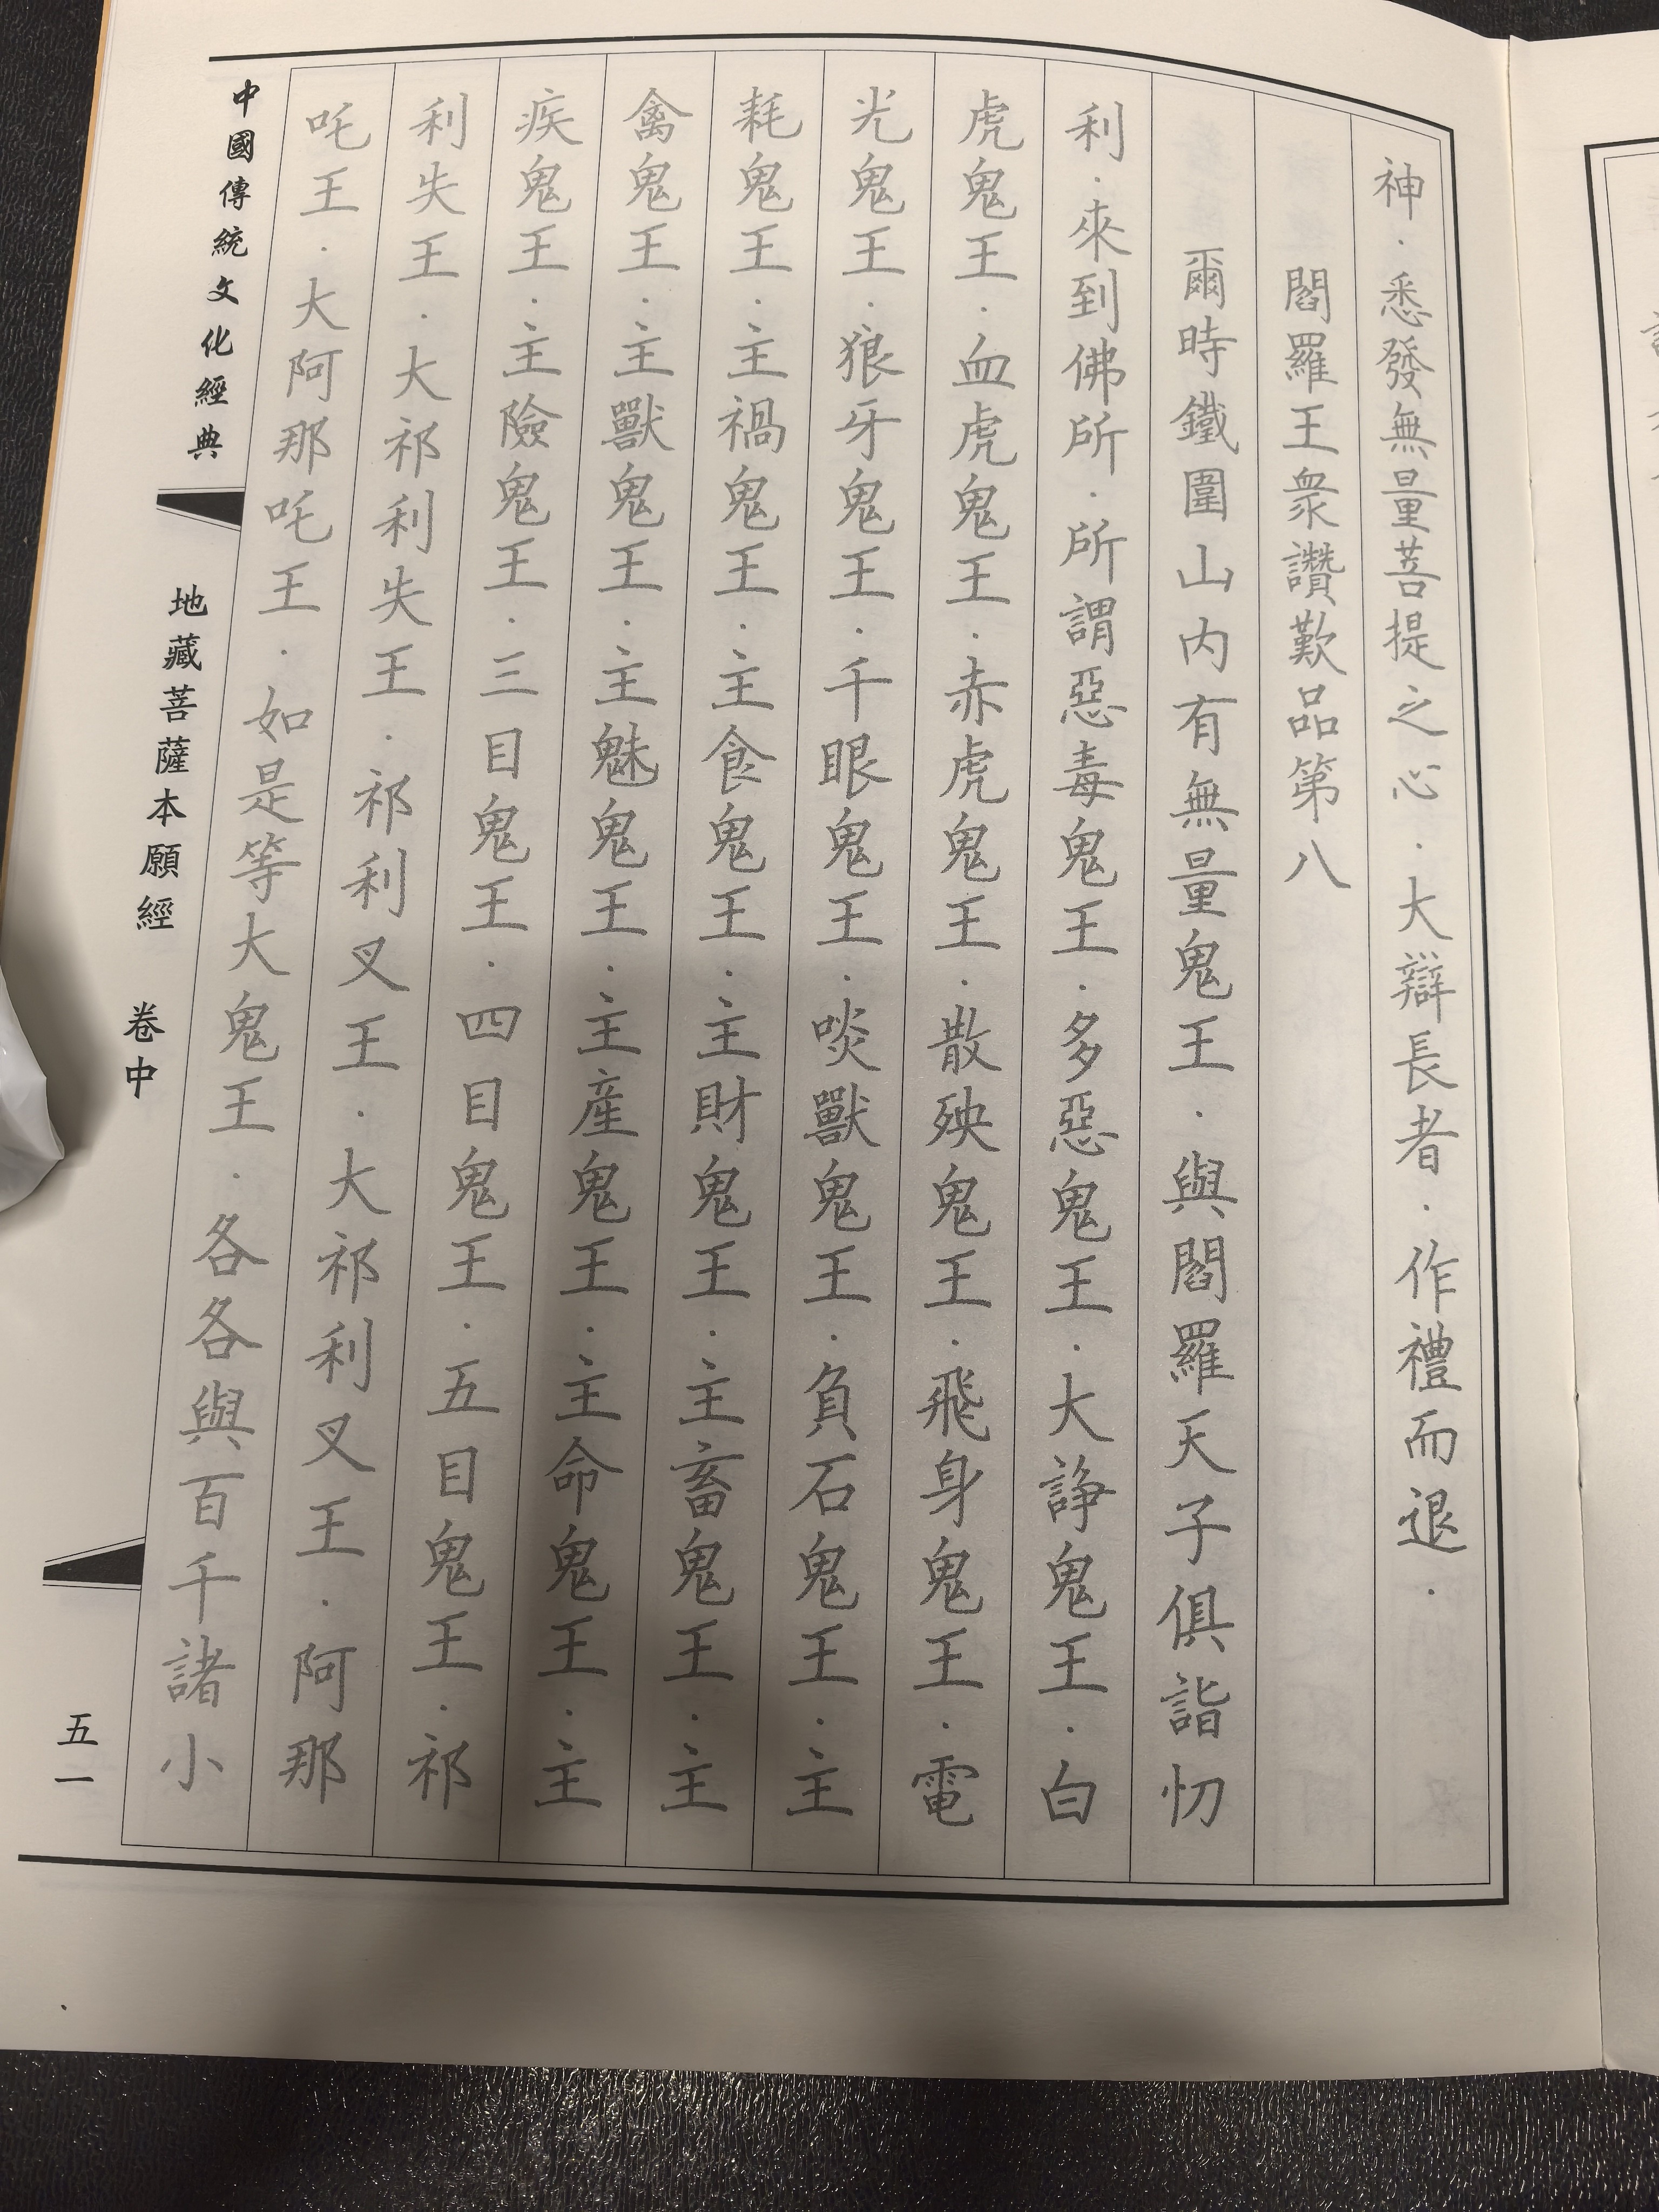 神．悉發無量菩提之心．大辯長者．作禮而退．
閻羅王衆讚歎品第八
爾時鐵圍山内有無量鬼王．與閻羅天子俱詣忉
利．來到佛所．所謂惡毒鬼王．多惡鬼王．大諍鬼王．白
虎鬼王．血虎鬼王．赤虎鬼王．散殃鬼王．飛身鬼王．電
光鬼王．狼牙鬼王．千眼鬼王．啖獸鬼王．負石鬼王．主
耗鬼王．主禍鬼王．主食鬼王．主財鬼王．主畜鬼王．主
禽鬼王．主獸鬼王．主魅鬼王．主産鬼王．主命鬼王．主
疾鬼王．主險鬼王．三目鬼王．四目鬼王．五目鬼王．祁
利失王．大祁利失王．祁利叉王．大祁利叉王．阿那
吒王．大阿那吒王．如是等大鬼王．各各與百千諸小
中國傳統文化經典
地藏菩薩本願經 卷中
五一